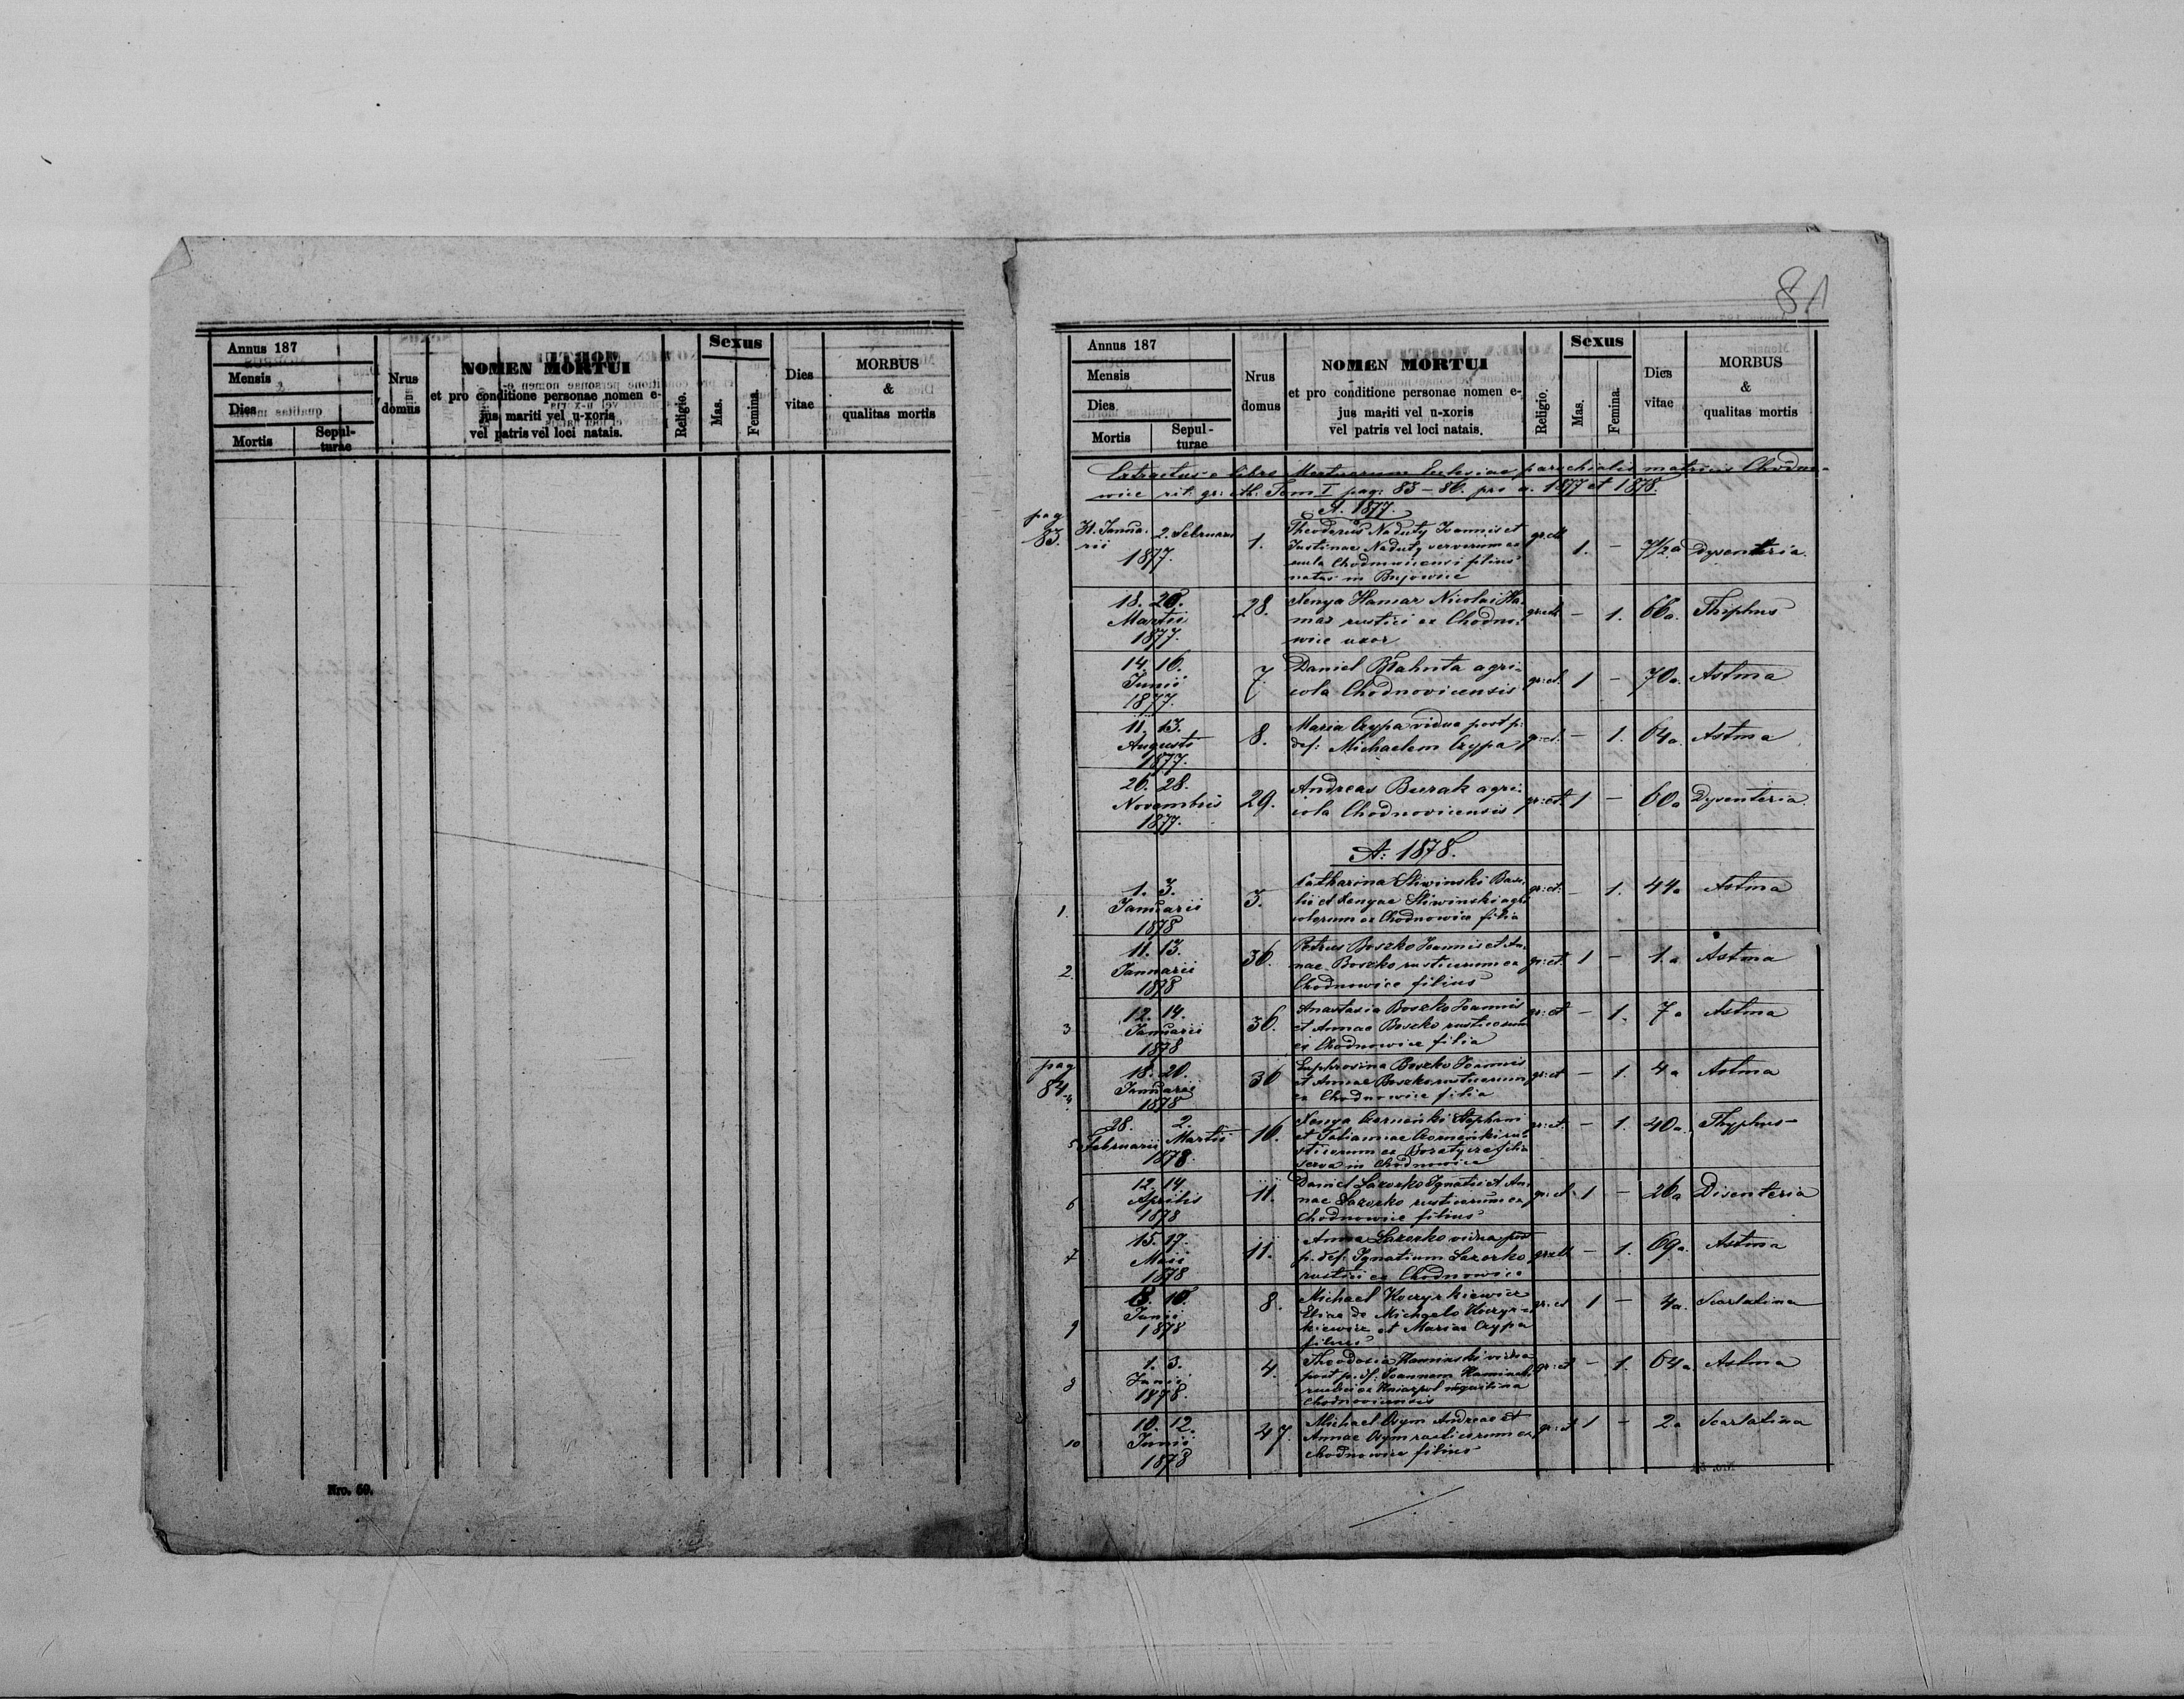 Annus 187
Mensis
Dies
Mortis
Sepul-
turae
Nrus
domus
NOMEN MORTUI
et pro conditione personae nomen e-
jus mariti vel u-xoris
vel patris vel loci natais.
Religio.
Sexus
Mas.
Femina.
Dies
vitae
MORBUS
&
qualitas mortis
Nro. 60.
81
Annus 187
Mensis
Dies
Mortis
Sepul-
turae
Nrus
domus
NOMEN MORTUI
et pro conditione personae nomen e-
jus mariti vel u-xoris
vel patris vel loci natais.
Religio.
Sexus
Mas.
Femina.
Dies
vitae
MORBUS
&
qualitas mortis
Extractus e libro Mortuorum Eclesiae parochialis matricis Chodno-
wice rit: gr: cth: Tom I pag: 83-86. pro a. 1877 et 1878.
A. 1877.
pag 83.
31. Janua-
rii 2. Februarii
1877.
1.
Theodorus Naduty Joannis et
Justinae Naduty servorum ex
Chodnowicensi filius
natus in Bujowice
gr:ct
1. - 7 1/2 a Dysenteria.
18. 20.
Martii
1877.
28.
Xenya Hamar Nicolai Ha-
mar rustici ex Chodno-
wice uxor
gr:cth - 1. 66a. Thiphus
14. 16.
Junii
1877.
7
Daniel Brahuta agri-
cola Chodnovicensis
gr:ct. 1 - 70a. Astma
11. 13.
Augusti
1877.
8.
Maria Czypa vidua post p:
def: Michaelem Czypa
gr:ct. - 1. 64a. Astma
26. 28.
Novembris
1877.
29.
Andreas Burak agri-
cola Chodnovicensis
gr:ct. 1 - 60a Dysenteria.
A: 1878.
1.
1. 3.
Januarii
1878
3.
Catharina Sliwinski Basi-
lii et Xenyae Sliwinski agri
colorum ex Chodnowice filia
gr:ct: - 1. 44a Astma
2.
11. 13.
Januarii
1878
36.
Petrus Boszko Joannis et An-
nae Boszko rusticorum ex
Chodnowice filius
gr:ct. 1 - 1.a Astma
3
12. 14.
Januarii
1878
36.
Anastasia Boszko Joannis
et Annae Boszko rusticorum
ex Chodnowice filia
gr:ct - 1. 7a Astma
pag
84.
4.
18. 20.
Januarii
1878
36
Euphrosina Boszko Joannis
et Annae Boszko rusticorum
ex Chodnowice filia
gr:ct - 1. 4a Astma
5
28. 2.
Februarii Martii
1878.
16.
Xenya Stephani
et Tatiannae ru-
sticorum ex filia
serva in Chodnowice
gr:ct. - 1. 40a. Thyphus-
6
12. 14.
Aprilis
1878
11.
Daniel Lazorko Ignatii et An-
nae Lazorko rusticorum ex
Chodnowice filius
gr:ct. 1 - 26a Disenteria
7
15. 17.
Maii
1878
11.
Anna Lazorko vidua post
p. def. Ignatium Lazorko
rustici ex Chodnowice
gr:ctt - 1. 69a. Astma
9
8. 10.
Junii
1878
8.
Michael Koczyrkiewicz
Eliae de Michaelo Koczyr-
kiewicz et Mariae Czypa
filius
gr:ct 1 - 4a. Scarlatina
8
1. 3.
Junii
1878.
4.
Theodosia Kaminski vidua
post p. df: Joannem Kaminski
rustici ex inquilina
Chodnoviensis
gr:ct - 1. 64a Astma
10
10. 12.
Junii
1878
47.
Michael Czym Andreae et
Annae Czym rusticorum ex
Chodnowice filius
gr:ct 1 - 2a Scarlatina